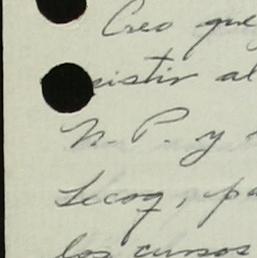 Creo que
sistir al
N. P. y
Lecoq, pa
los cursos